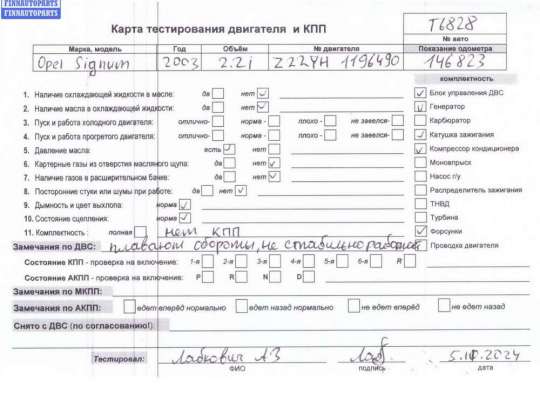 FINNAUTOPARTS
FINNAUTOPARTS
Карта тестирования двигателя и КПП
T6828
№ авто
Марка, модель Год Объём № двигателя Показание одометра
Opel Signum 2003 2.2i Z22YH 1196490 146823
комплектность
1. Наличие охлаждающей жидкости в масле: да нет
Блок управления ДВС
2. Наличие масла в охлаждающей жидкости: да нет
Генератор
3. Пуск и работа холодного двигателя: отлично- норма - плохо - не завелся-
Карбюратор
4. Пуск и работа прогретого двигателя: отлично - норма - плохо - не завелся-
Катушка зажигания
5. Давление масла: есть нет
Компрессор кондиционера
6. Картерные газы из отверстия масляного щупа: да нет
Моновпрыск
7. Наличие газов в расширительном бачке: да нет
Насос г/у
8. Посторонние стуки или шумы при работе: да нет
Распределитель зажигания
9. Дымность и цвет выхлопа: норма
ТНВД
10. Состояние сцепления: норма
Турбина
11. Комплектность : полная нет КПП
Форсунки
Замечания по ДВС: плавают обороты, не стабильно работает
Проводка двигателя
Состояние КПП - проверка на включение: 1-я 2-я 3-я 4-я 5-я 6-я R
Состояние АКПП - проверка на включение: P R N D
Замечания по МКПП:
Замечания по АКПП: едет вперёд нормально едет назад нормально не едет вперёд не едет назад
Снято с ДВС (по согласованию!):
Тестировал: Лабкович АЗ 5.10.2024
ФИО подпись дата